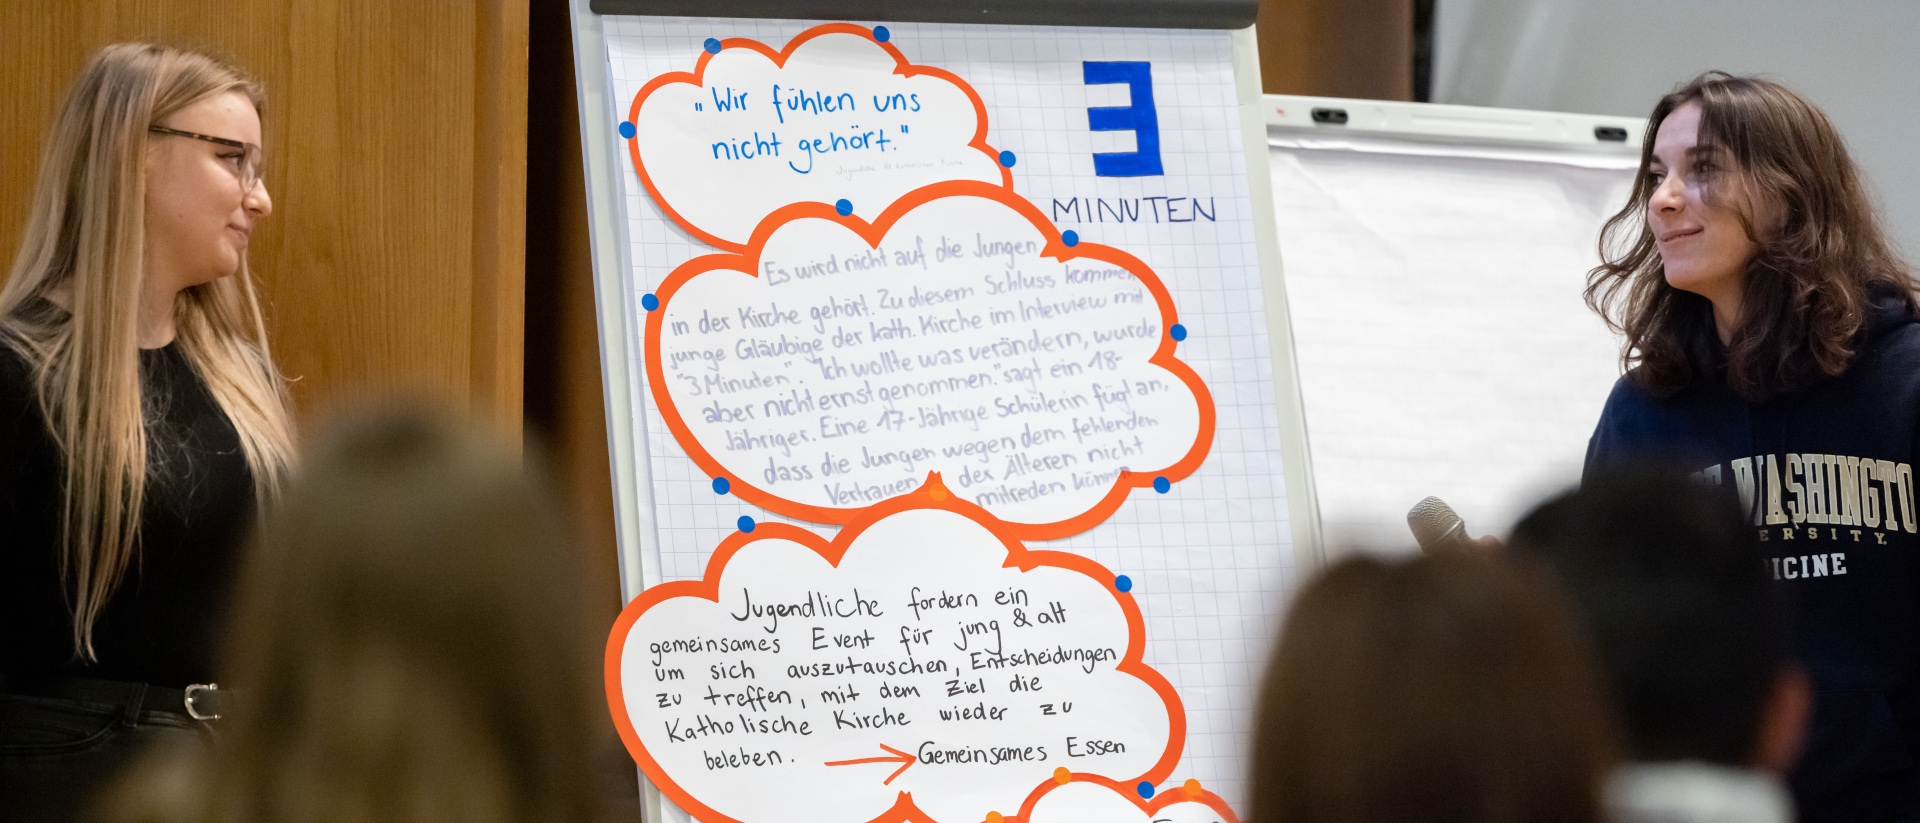 "Wir fühlen uns
nicht gehört."
3
MINUTEN
Es wird nicht auf die Jungen
in der Kirche gehört. Zu diesem Schluss kommen
junge Gläubige der kath. Kirche im Interview mit
"3 Minuten". "Ich wollte was verändern, wurde
aber nicht ernst genommen." sagt ein 18-
Jähriger. Eine 17-Jährige Schülerin fügt an,
dass die Jungen wegen dem fehlenden
Vertrauen der Älteren nicht
mitreden können
Jugendliche fordern ein
gemeinsames Event für jung & alt
um sich auszutauschen, Entscheidungen
zu treffen, mit dem Ziel die
Katholische Kirche wieder zu
beleben. → Gemeinsames Essen
WASHINGTO
ERSITY
ICINE